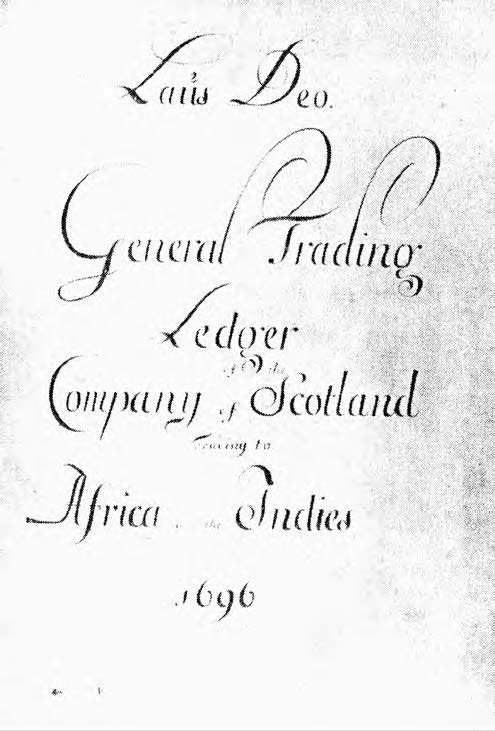 Laus Deo.
General Trading
Ledger
of the
Company of Scotland
Trading to
Africa the Indies
1696